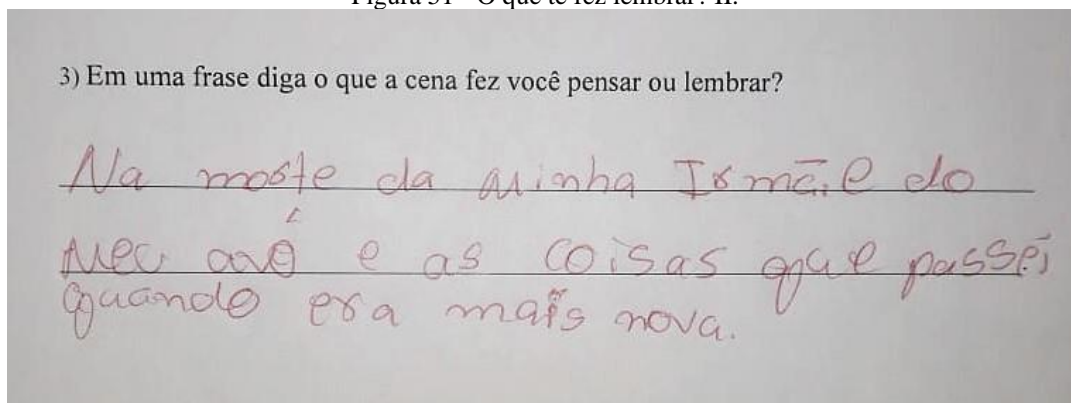 Figura 31 - O que te fez lembrar? II.
3) Em uma frase diga o que a cena fez você pensar ou lembrar?
Na morte da minha Irmã, e do
Meu avô e as coisas que passei
quando era mais nova.